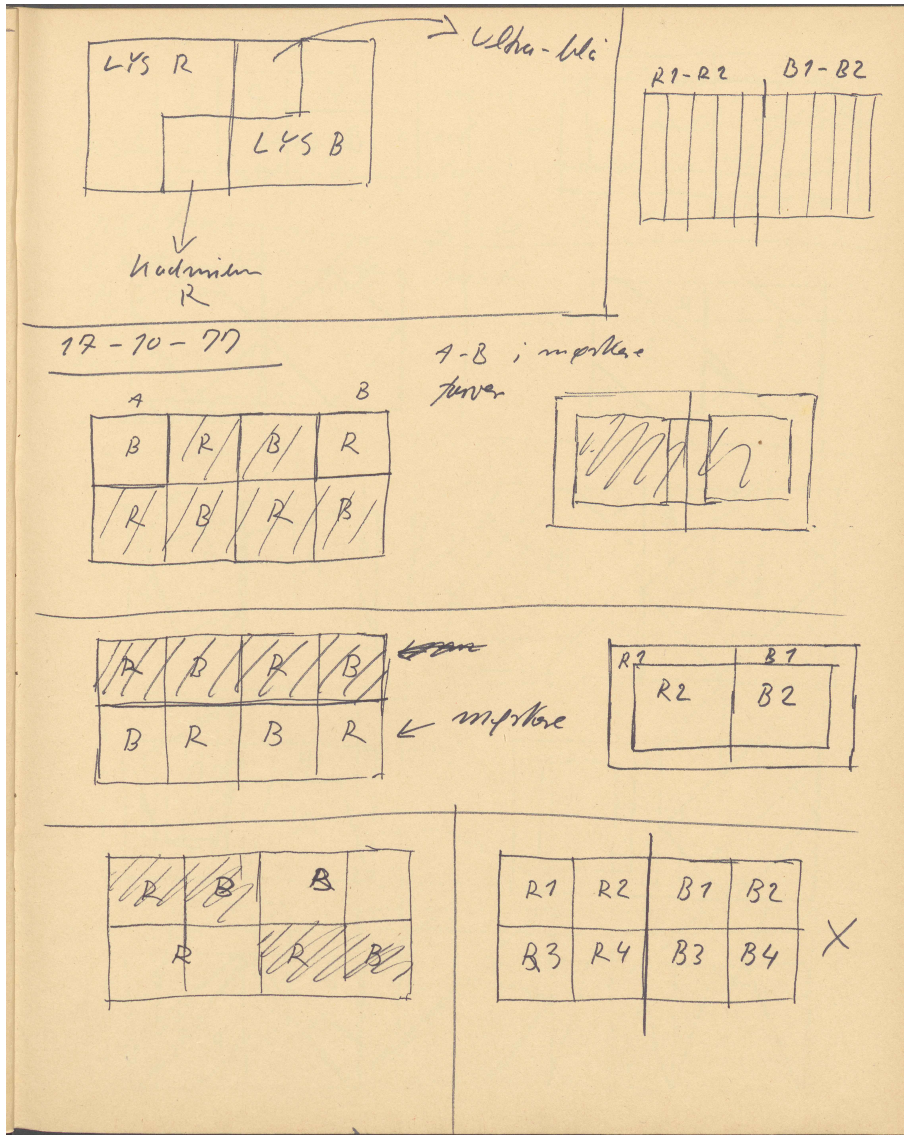 LYS R
Ultra-blå
LYS B
Kadmium
R
R1-R2 B1-B2
17-10-77
A-B i mørkere
farver
A B
B R B R
R B R B
R B R B
B R B R
mørkere
R1 B1
R2 B2
R B B
R R B
R1 R2 B1 B2
R3 R4 B3 B4
X